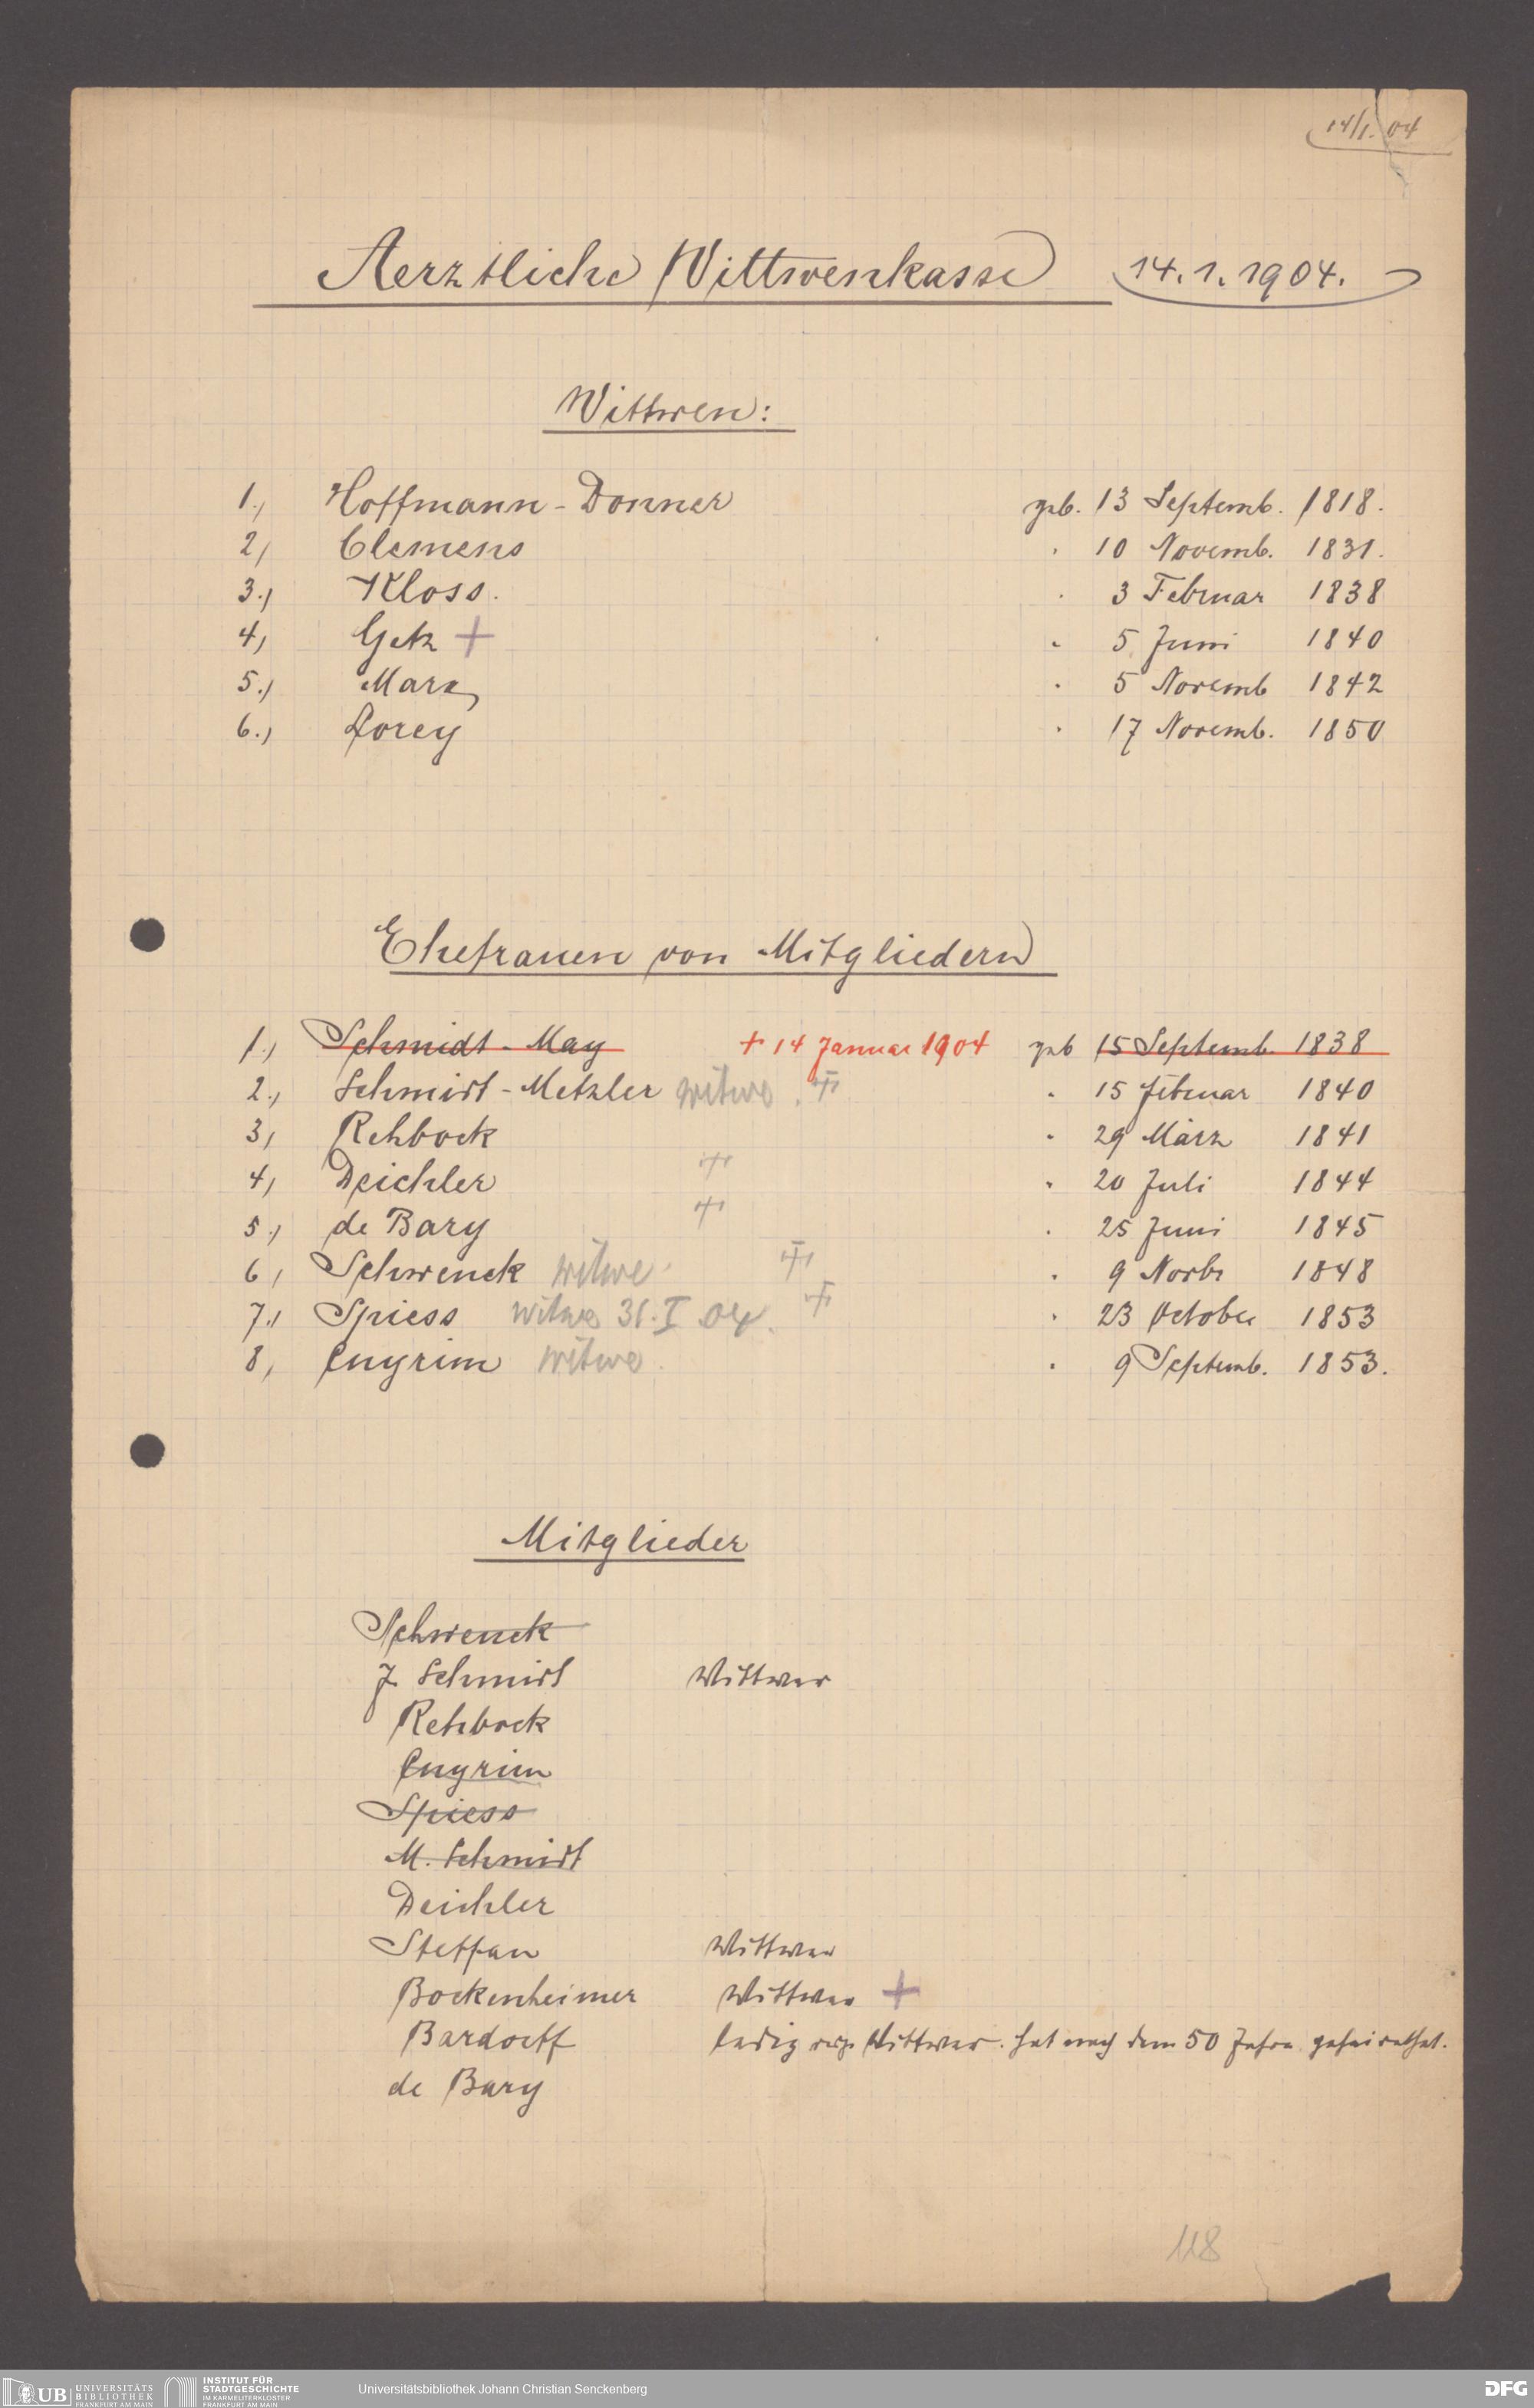 14/1. 04
Aerztliche Wittwenkasse 14.1.1904.
Wittwen:
1.) Hoffmann-Donner geb. 13 Septemb. 1818.
2) Clemens " 10 Novemb. 1831.
3.) Kloss. " 3 Februar 1838
4) Getz + " 5 Juni 1840
5.) Marx " 5 Novemb 1842
6.) Lorey " 17 Novemb. 1850
Ehefrauen von Mitgliedern
1.) Schmidt-May + 14 Januar 1904 geb 15 Septemb. 1838
2.) Schmidt-Metzler Witwe. + " 15 Februar 1840
3) Rehbock " 29 März 1841
4) Deichler + " 20 Juli 1844
5.) de Bary + " 25 Juni 1845
6) Schwenck Witwe + " 9 Novbr 1848
7.) Spiess Witwe 31. I 04. + " 23 October 1853
8) Cnyrim Witwe. " 9 Septemb. 1853.
Mitglieder
Schwenck
J. Schmidt Wittwer
Rehbock
Cnyrim
Spiess
M. Schmidt
Deichler
Steffan Wittwer
Bockenheimer Wittwer +
Bardorff ledig resp. Wittwer. hat nach dem 50 Jahre geheirathet.
de Bary
118
UB UNIVERSITÄTS
BIBLIOTHEK
FRANKFURT AM MAIN
INSTITUT FÜR
STADTGESCHICHTE
IM KARMELITERKLOSTER
FRANKFURT AM MAIN
Universitätsbibliothek Johann Christian Senckenberg
DFG